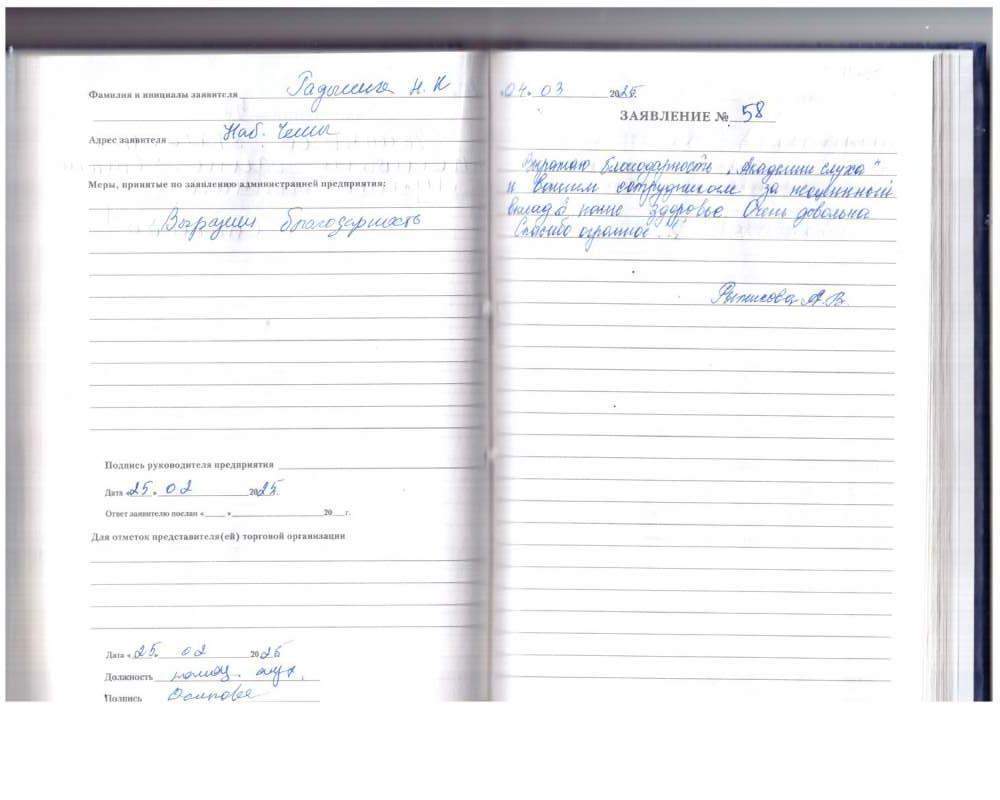 Фамилия и инициалы заявителя Н. К
Адрес заявителя Наб. Челны
Меры, принятые по заявлению администрацией предприятия:
Выразили благодарность
Подпись руководителя предприятия
Дата «25» 02 2025г.
Ответ заявителю послан « » 20 г.
Для отметок представителя(ей) торговой организации
Дата «25. 02 2025
Должность
Подпись Осипова
04. 03 2025.
ЗАЯВЛЕНИЕ № 58
Выражаю благодарность "Академии слуха"
и Вашим сотрудникам за неоценимый
вклад в наше здоровье Очень довольна
Спасибо огромное...!!
А.В.